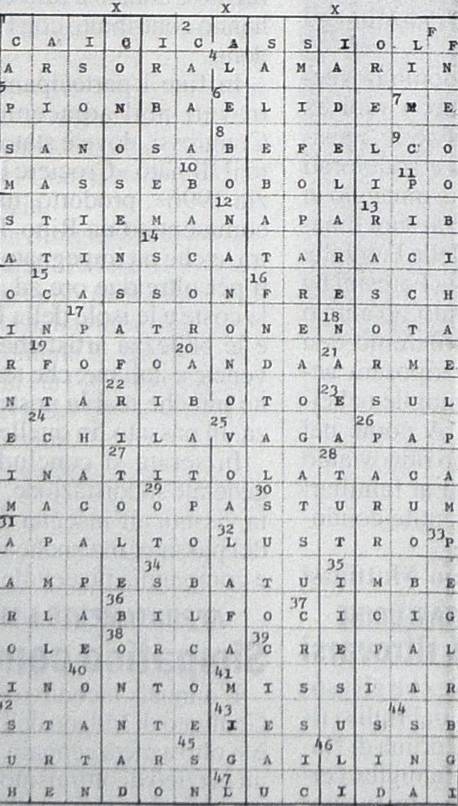 X X X
2
C A I G I C A S S I O L F F
4
A R S O R A L A M A R I N
5 6 7
P I O N B A E L I D E M E
8 9
S A N O S A B E F E L C O
10 11
M A S S E B O B O L I P O
12 13
S T I E M A N A P A R I B
14
A T I N S C A T A R A C I
15 16
O C A S S O N F R E S C H
17 18
I N P A T R O N E N O T A
19 20 21
R F O F O A N D A A R M E
22 23
N T A R I B O T O E S U L
24 25 26
E C H I L A V A G A P A P
27 28
I N A T I T O L A T A C A
29 30
M A C O O P A S T U R U M
31 32 33
A P A L T O L U S T R O P
34 35
A M P E S B A T U I M B E
36 37
R L A B I L F O C I C I G
38 39
O L E O R C A C R E P A L
40 41
I N O N T O M I S S I A R
42 43 44
S T A N T E I E S U S S B
45 46
U R T A R S G A I L I N G
47
H E N D O N L U C I D A I